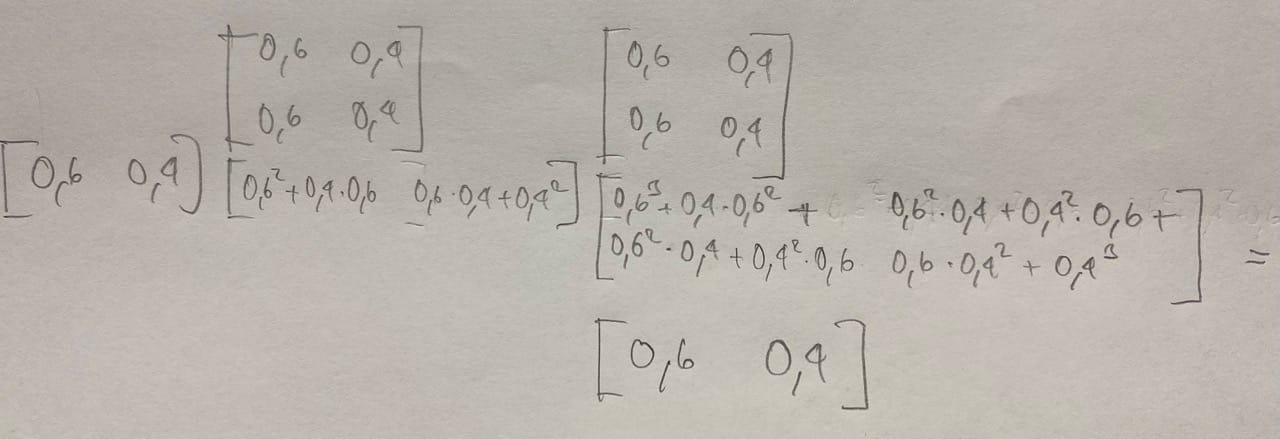 [0,6 0,4] [0,6 0,4]
[0,6 0,4]
[0,6 0,4] [0,6²+0,4·0,6 0,6·0,4+0,4²] [0,6³+0,4·0,6² + 0,6²·0,4+0,4²·0,6+
0,6²·0,4+0,4²·0,6 0,6·0,4²+0,4³] =
[0,6 0,4]